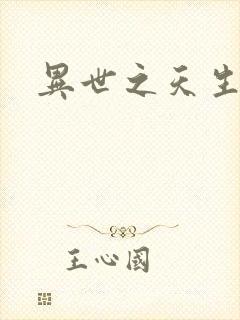 異世之天生
王心國